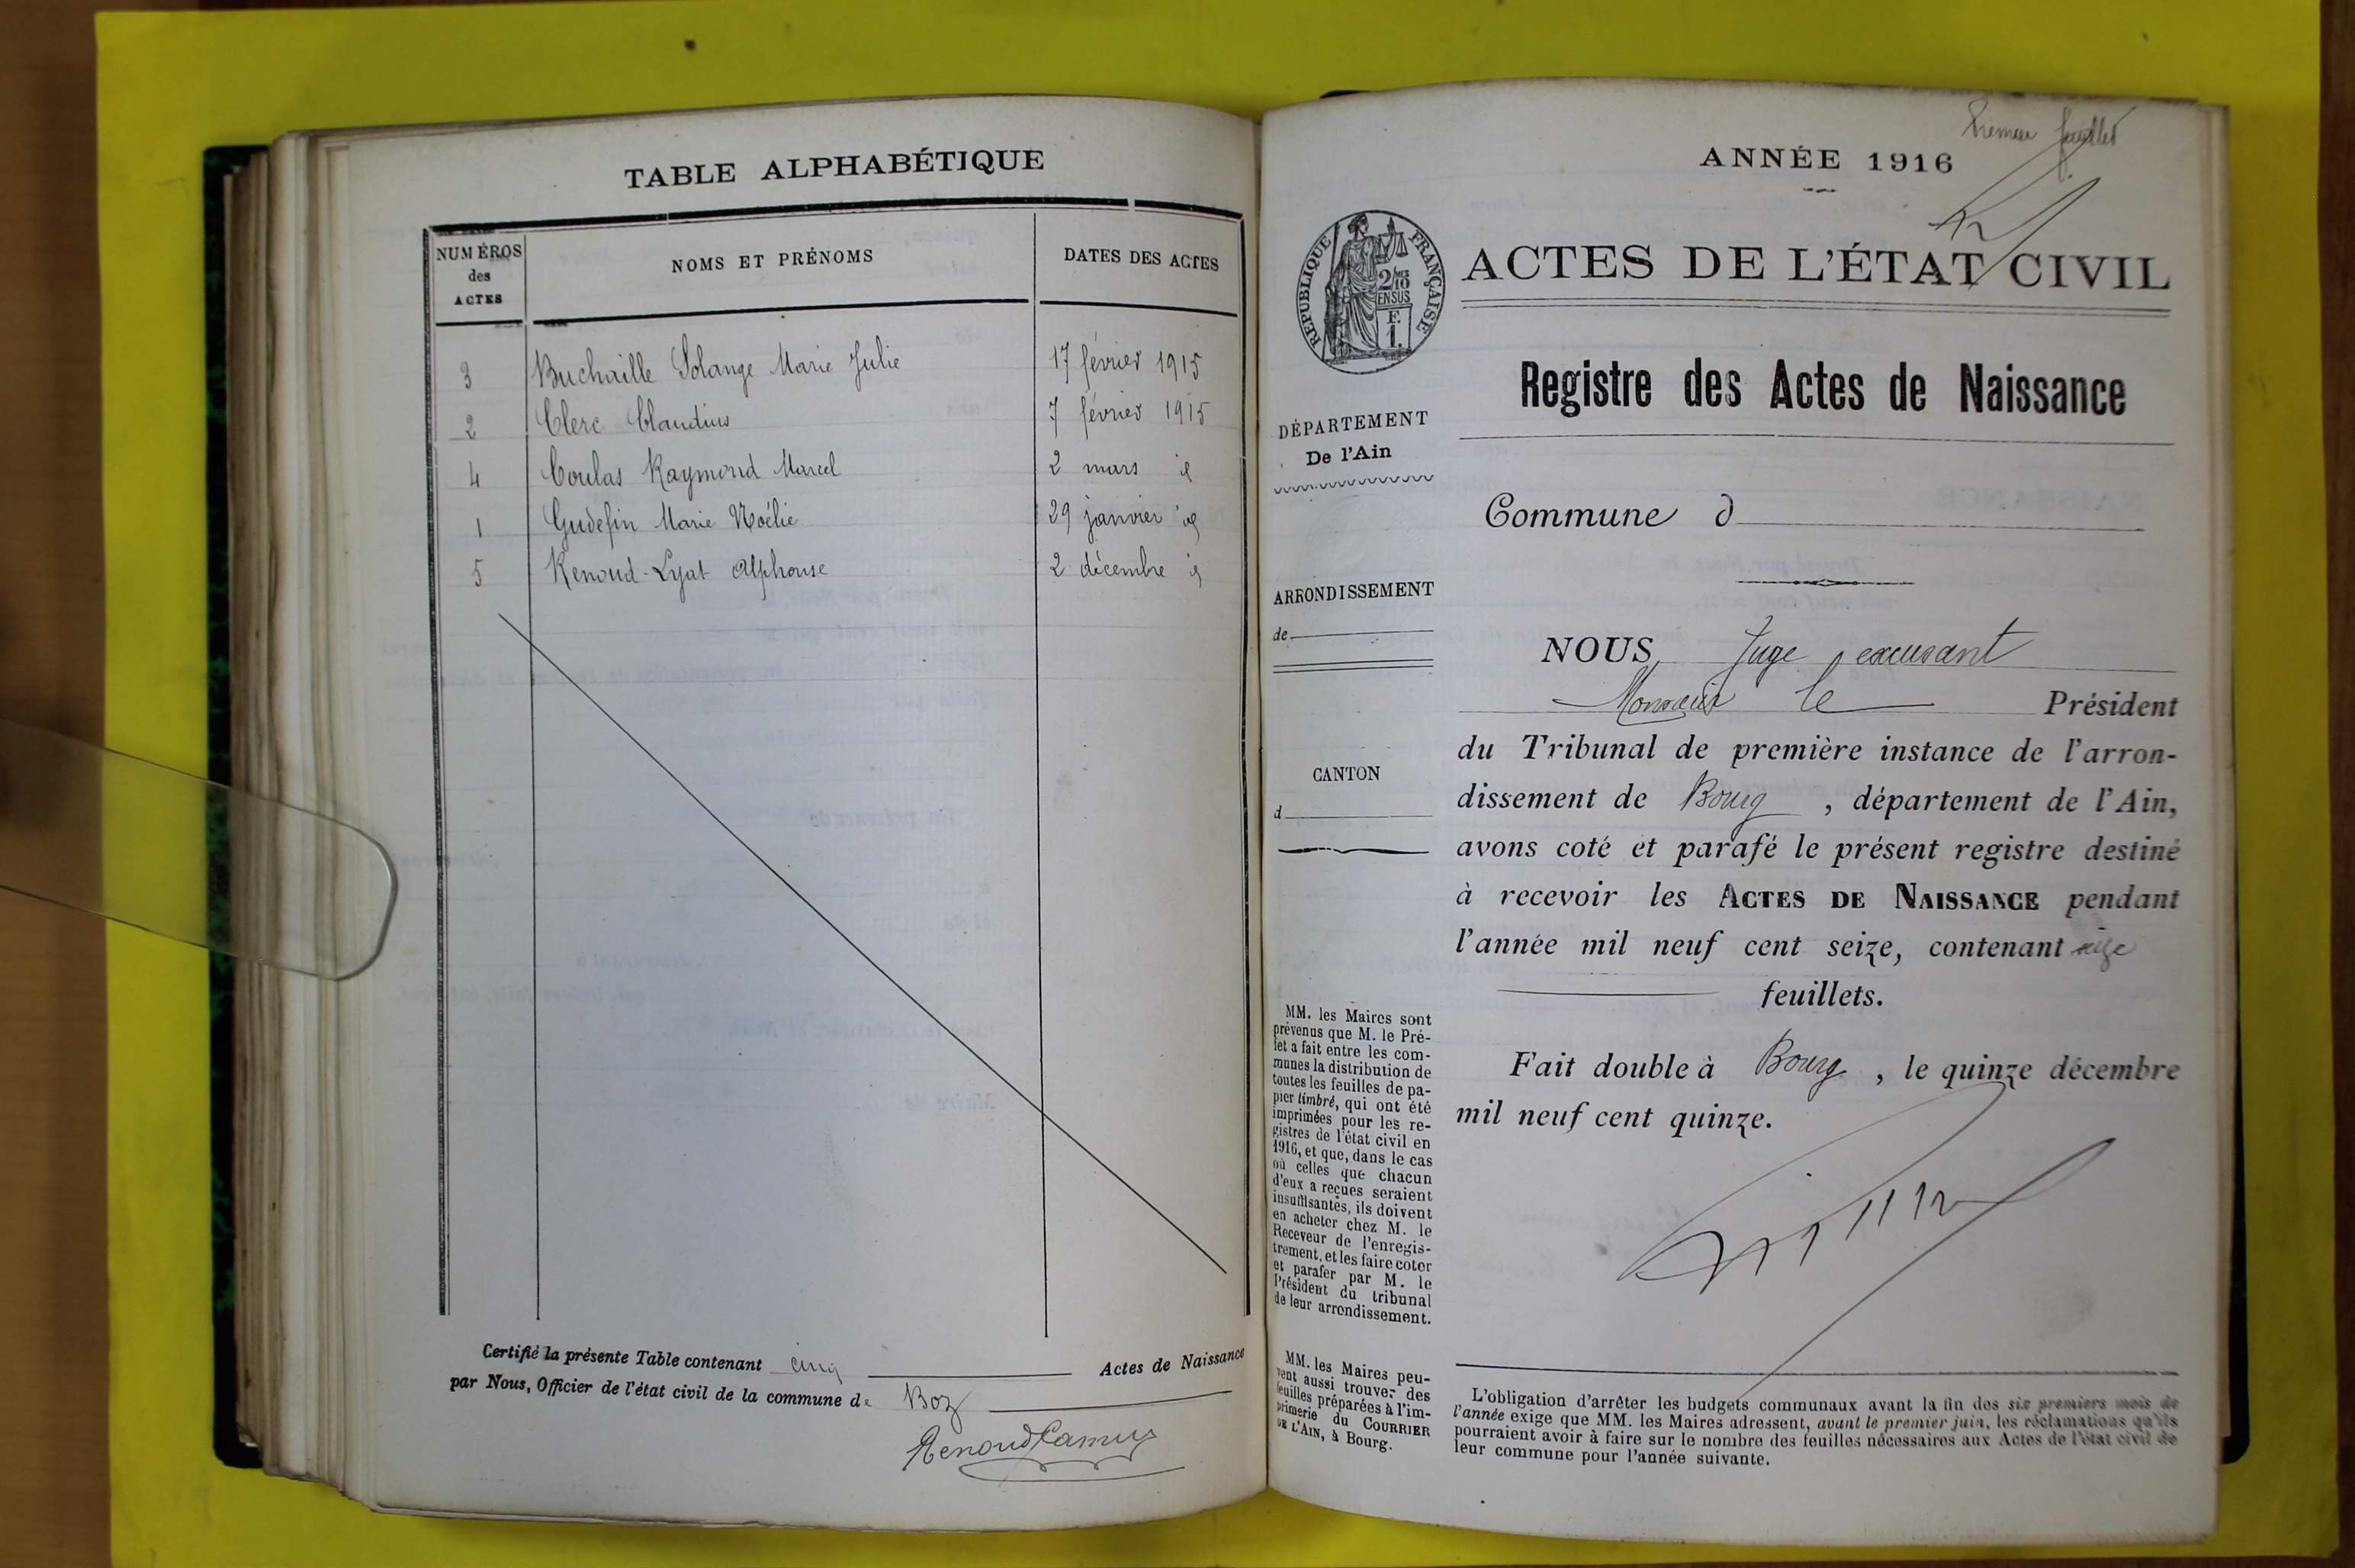 TABLE ALPHABÉTIQUE
NUMÉROS
des
ACTES
NOMS ET PRÉNOMS
DATES DES ACTES
3 Buchaille Solange Marie Julie 17 février 1915
2 Clerc Claudius 7 février 1915
4 Coulas Raymond Marcel 2 mars id
1 Gudefin Marie Noélie 29 janvier id
5 Renoud-Lyat Alphonse 2 décembre id
Certifié la présente Table contenant cinq Actes de Naissance
par Nous, Officier de l'état civil de la commune de Boz
Renoud Camus
Premier feuillet
ANNÉE 1916
RÉPUBLIQUE FRANÇAISE
2/10
EN SUS
F.
1.
ACTES DE L'ÉTAT CIVIL
Registre des Actes de Naissance
DÉPARTEMENT
De l'Ain
Commune d
ARRONDISSEMENT
de
CANTON
d
NOUS, Juge excusant
Monsieur le Président
du Tribunal de première instance de l'arron-
dissement de Bourg, département de l'Ain,
avons coté et parafé le présent registre destiné
à recevoir les ACTES DE NAISSANCE pendant
l'année mil neuf cent seize, contenant seize
feuillets.
Fait double à Bourg, le quinze décembre
mil neuf cent quinze.
MM. les Maires sont
prévenus que M. le Pré-
fet a fait entre les com-
munes la distribution de
toutes les feuilles de pa-
pier timbré, qui ont été
imprimées pour les re-
gistres de l'état civil en
1916, et que, dans le cas
où celles que chacun
d'eux a reçues seraient
insuffisantes, ils doivent
en acheter chez M. le
Receveur de l'enregis-
trement, et les faire coter
et parafer par M. le
Président du tribunal
de leur arrondissement.
MM. les Maires peu-
vent aussi trouver des
feuilles préparées à l'im-
primerie du COURRIER
DE L'AIN, à Bourg.
L'obligation d'arrêter les budgets communaux avant la fin des six premiers mois de
l'année exige que MM. les Maires adressent, avant le premier juin, les réclamations qu'ils
pourraient avoir à faire sur le nombre des feuilles nécessaires aux Actes de l'état civil de
leur commune pour l'année suivante.